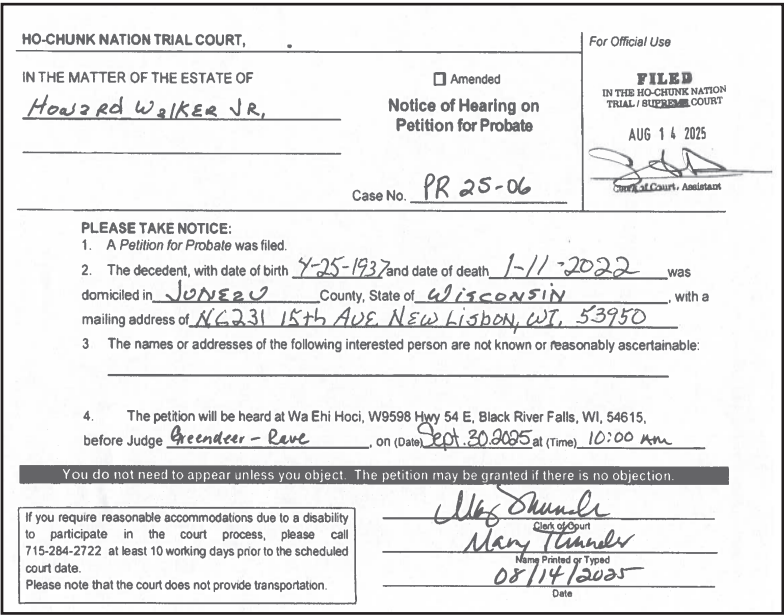 HO-CHUNK NATION TRIAL COURT,
For Official Use
IN THE MATTER OF THE ESTATE OF
Howard Walker JR,
Amended
Notice of Hearing on
Petition for Probate
Case No. PR 25-06
FILED
IN THE HO-CHUNK NATION
TRIAL / SUPREME COURT
AUG 14 2025
Clerk of Court, Assistant
PLEASE TAKE NOTICE:
1. A Petition for Probate was filed.
2. The decedent, with date of birth 4-25-1937 and date of death 1-11-2022 was
domiciled in JUNEAU County, State of WISCONSIN, with a
mailing address of N6231 15th AVE. NEW LISBON, WI. 53950
3 The names or addresses of the following interested person are not known or reasonably ascertainable:
4. The petition will be heard at Wa Ehi Hoci, W9598 Hwy 54 E, Black River Falls, WI, 54615,
before Judge Greendeer-Rave, on (Date) Sept. 30. 2025 at (Time) 10:00 AM
You do not need to appear unless you object. The petition may be granted if there is no objection.
If you require reasonable accommodations due to a disability
to participate in the court process, please call
715-284-2722 at least 10 working days prior to the scheduled
court date.
Please note that the court does not provide transportation.
Mary Thunder
Clerk of Court
Mary Thunder
Name Printed or Typed
08/14/2025
Date